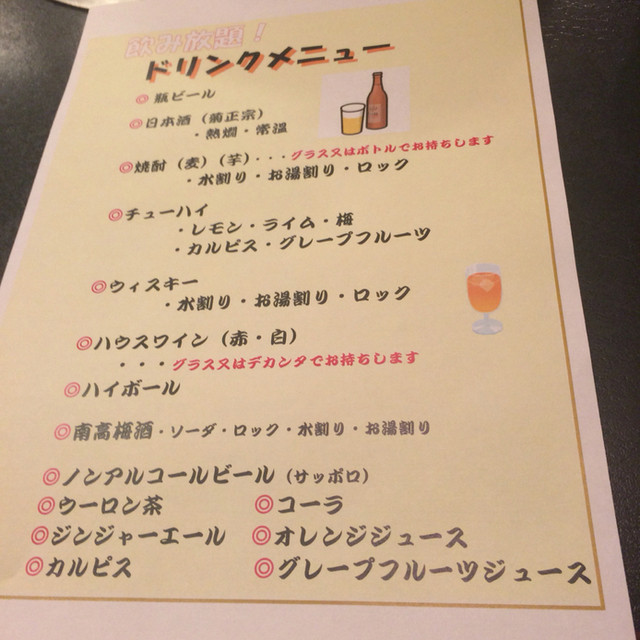 飲み放題！
ドリンクメニュー
◎瓶ビール
◎日本酒（菊正宗）
・熱燗・常温
◎焼酎（麦）（芋）・・・グラス又はボトルでお持ちします
・水割り・お湯割り・ロック
◎チューハイ
・レモン・ライム・梅
・カルピス・グレープフルーツ
◎ウィスキー
・水割り・お湯割り・ロック
◎ハウスワイン（赤・白）
・・・グラス又はデカンタでお持ちします
◎ハイボール
◎南高梅酒・ソーダ・ロック・水割り・お湯割り
◎ノンアルコールビール（サッポロ）
◎ウーロン茶 ◎コーラ
◎ジンジャーエール ◎オレンジジュース
◎カルピス ◎グレープフルーツジュース